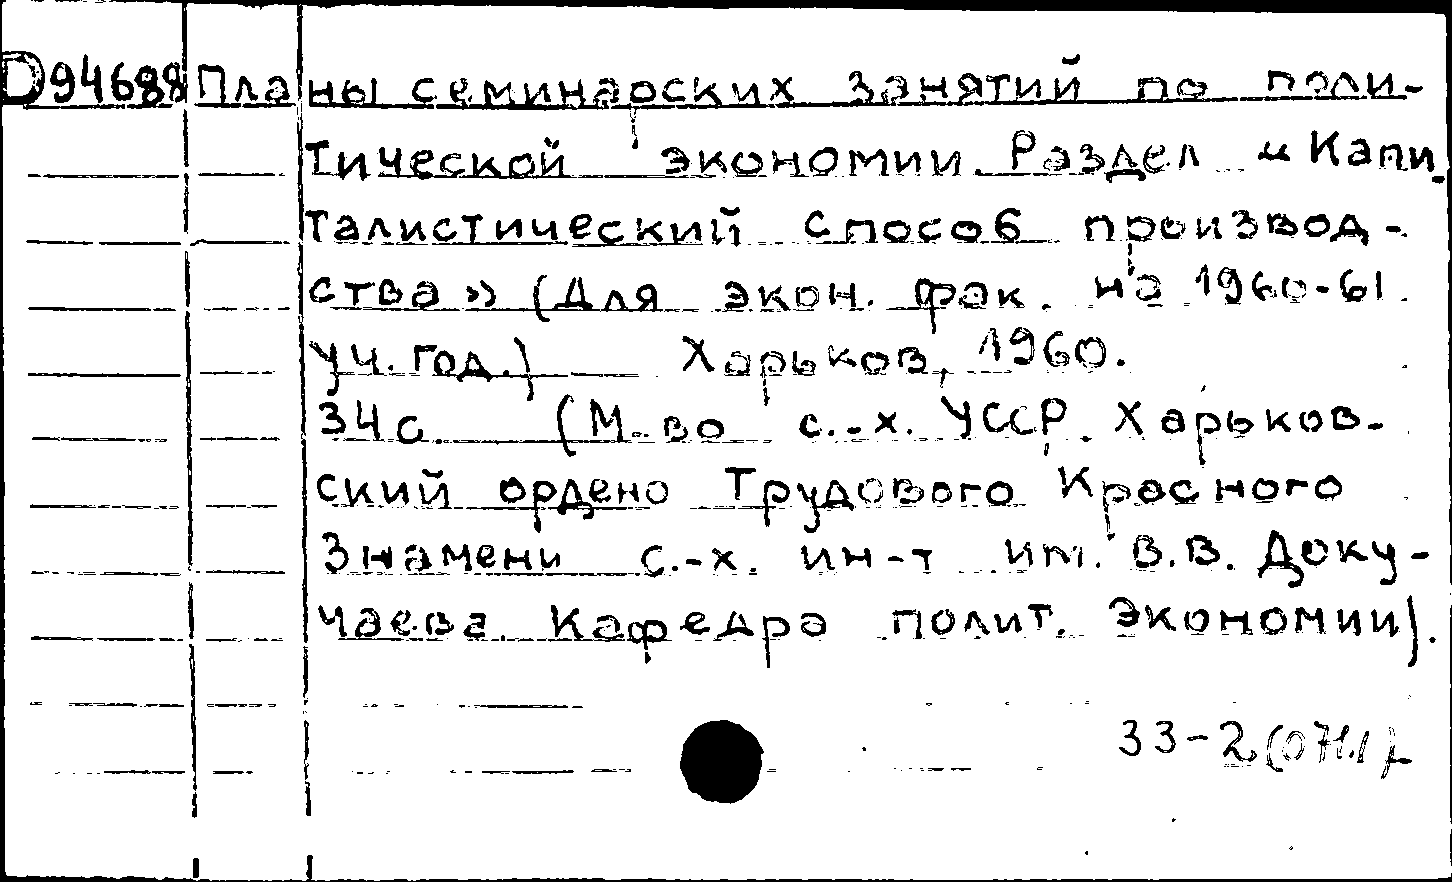 D94688 Планы семинарских занятий по поли-
тической экономии. Раздел "Капи-
талистический способ производ-
ства» (Для экон. фак. на 1960-61
уч. год.) Харьков, 1960.
34 с. (М-во с.-х. УССР. Харьков-
ский ордено Трудового Красного
Знамени с.-х. ин-т им. В.В. Доку-
чаева. Кафедра полит. экономии).
33-2(071.1)